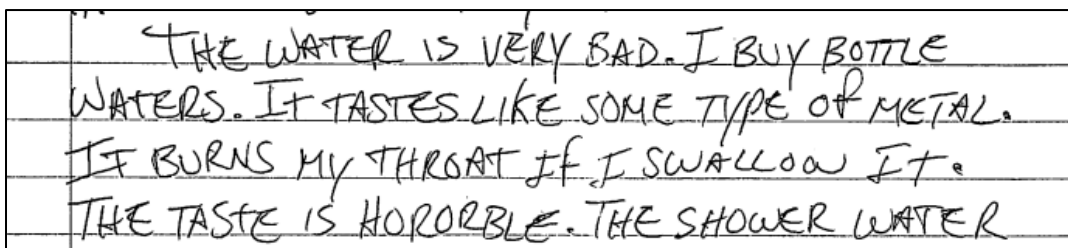 THE WATER IS VERY BAD. I BUY BOTTLE
WATERS. IT TASTES LIKE SOME TYPE Of METAL.
IT BURNS MY THROAT If I SWALLOW IT.
THE TASTE IS HORORBLE. THE SHOWER WATER